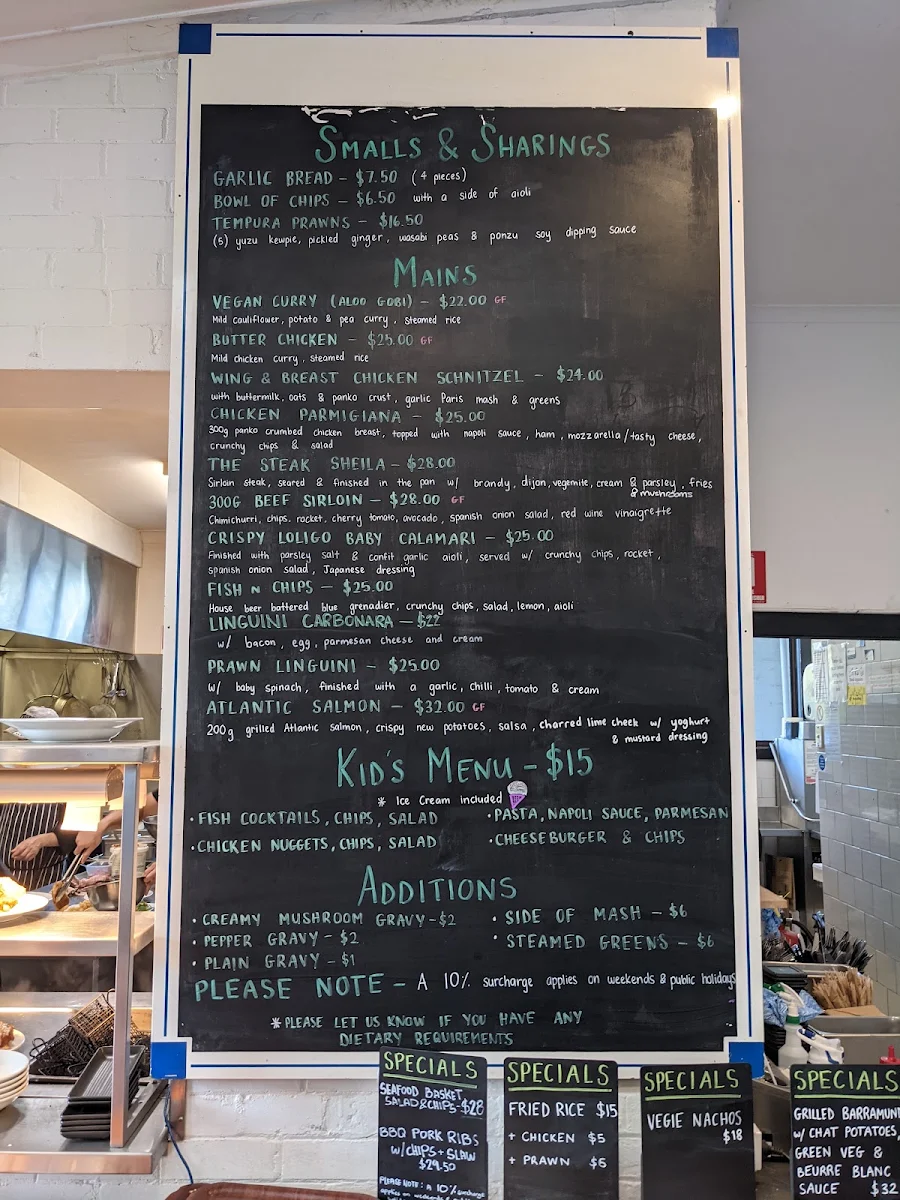 SMALLS & SHARINGS
GARLIC BREAD - $7.50 (4 pieces)
BOWL OF CHIPS - $6.50 with a side of aioli
TEMPURA PRAWNS - $16.50
(5) yuzu kewpie, pickled ginger, wasabi peas & ponzu soy dipping sauce
MAINS
VEGAN CURRY (ALOO GOBI) - $22.00 GF
Mild cauliflower, potato & pea curry, steamed rice
BUTTER CHICKEN - $25.00 GF
Mild chicken curry, steamed rice
WING & BREAST CHICKEN SCHNITZEL - $24.00
with buttermilk, oats & panko crust, garlic Paris mash & greens
CHICKEN PARMIGIANA - $25.00
300g panko crumbed chicken breast, topped with napoli sauce, ham, mozzarella/tasty cheese,
crunchy chips & salad
THE STEAK SHEILA - $28.00
Sirloin steak, seared & finished in the pan w/ brandy, dijon, vegemite, cream & parsley, fries
& mushrooms
300G BEEF SIRLOIN - $28.00 GF
Chimichurri, chips, rocket, cherry tomato, avocado, spanish onion salad, red wine vinaigrette
CRISPY LOLIGO BABY CALAMARI - $25.00
Finished with parsley salt & confit garlic aioli, served w/ crunchy chips, rocket,
spanish onion salad, Japanese dressing
FISH N CHIPS - $25.00
House beer battered blue grenadier, crunchy chips, salad, lemon, aioli
LINGUINI CARBONARA - $22
w/ bacon, egg, parmesan cheese and cream
PRAWN LINGUINI - $25.00
w/ baby spinach, finished with a garlic, chilli, tomato & cream
ATLANTIC SALMON - $32.00 GF
200g grilled Atlantic salmon, crispy new potatoes, salsa, charred lime cheek w/ yoghurt
& mustard dressing
KID'S MENU - $15
* Ice Cream included
• FISH COCKTAILS, CHIPS, SALAD
• PASTA, NAPOLI SAUCE, PARMESAN
• CHICKEN NUGGETS, CHIPS, SALAD
• CHEESEBURGER & CHIPS
ADDITIONS
• CREAMY MUSHROOM GRAVY - $2
• SIDE OF MASH - $6
• PEPPER GRAVY - $2
• STEAMED GREENS - $6
• PLAIN GRAVY - $1
PLEASE NOTE - A 10% surcharge applies on weekends & public holidays
* PLEASE LET US KNOW IF YOU HAVE ANY
DIETARY REQUIREMENTS
SPECIALS
SEAFOOD BASKET
SALAD & CHIPS - $28
BBQ PORK RIBS
W/ CHIPS + SLAW
$29.50
PLEASE NOTE: A 10% surcharge
applies on
SPECIALS
FRIED RICE $15
+ CHICKEN $5
+ PRAWN $6
SPECIALS
VEGIE NACHOS
$18
SPECIALS
GRILLED BARRAMUN
W/ CHAT POTATOES,
GREEN VEG &
BEURRE BLANC
SAUCE $32